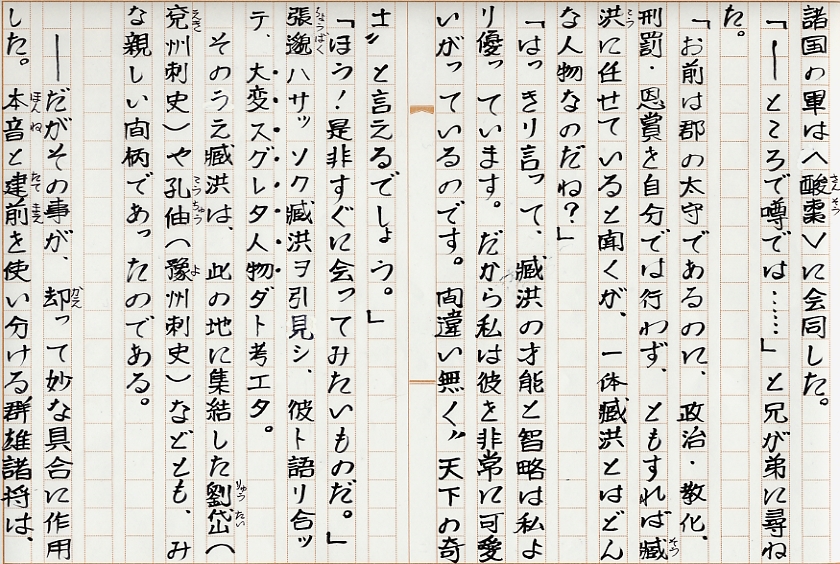 諸国の軍は〈酸棗〉に会同した。
「――ところで噂では……」と兄が弟に尋ね
た。
「お前は郡の太守であるのに、政治・教化、
刑罰・恩賞を自分では行わず、ともすれば臧
洪に任せていると聞くが、一体臧洪とはどん
な人物なのだね?」
「はっきり言って、臧洪の才能と智略は私よ
り優っています。だから私は彼を非常に可愛
いがっているのです。間違い無く〝天下の奇
士〟と言えるでしょう。」
「ほう!是非すぐに会ってみたいものだ。」
張邈ハサッソク臧洪ヲ引見シ、彼ト語リ合ッ
テ、大変スグレタ人物ダト考エタ。
そのうえ臧洪は、此の地に集結した劉岱(
兗州刺史)や孔伷(豫州刺史)などとも、み
な親しい間柄であったのである。
――だがその事が、却って妙な具合に作用
した。本音と建前を使い分ける群雄諸将は、